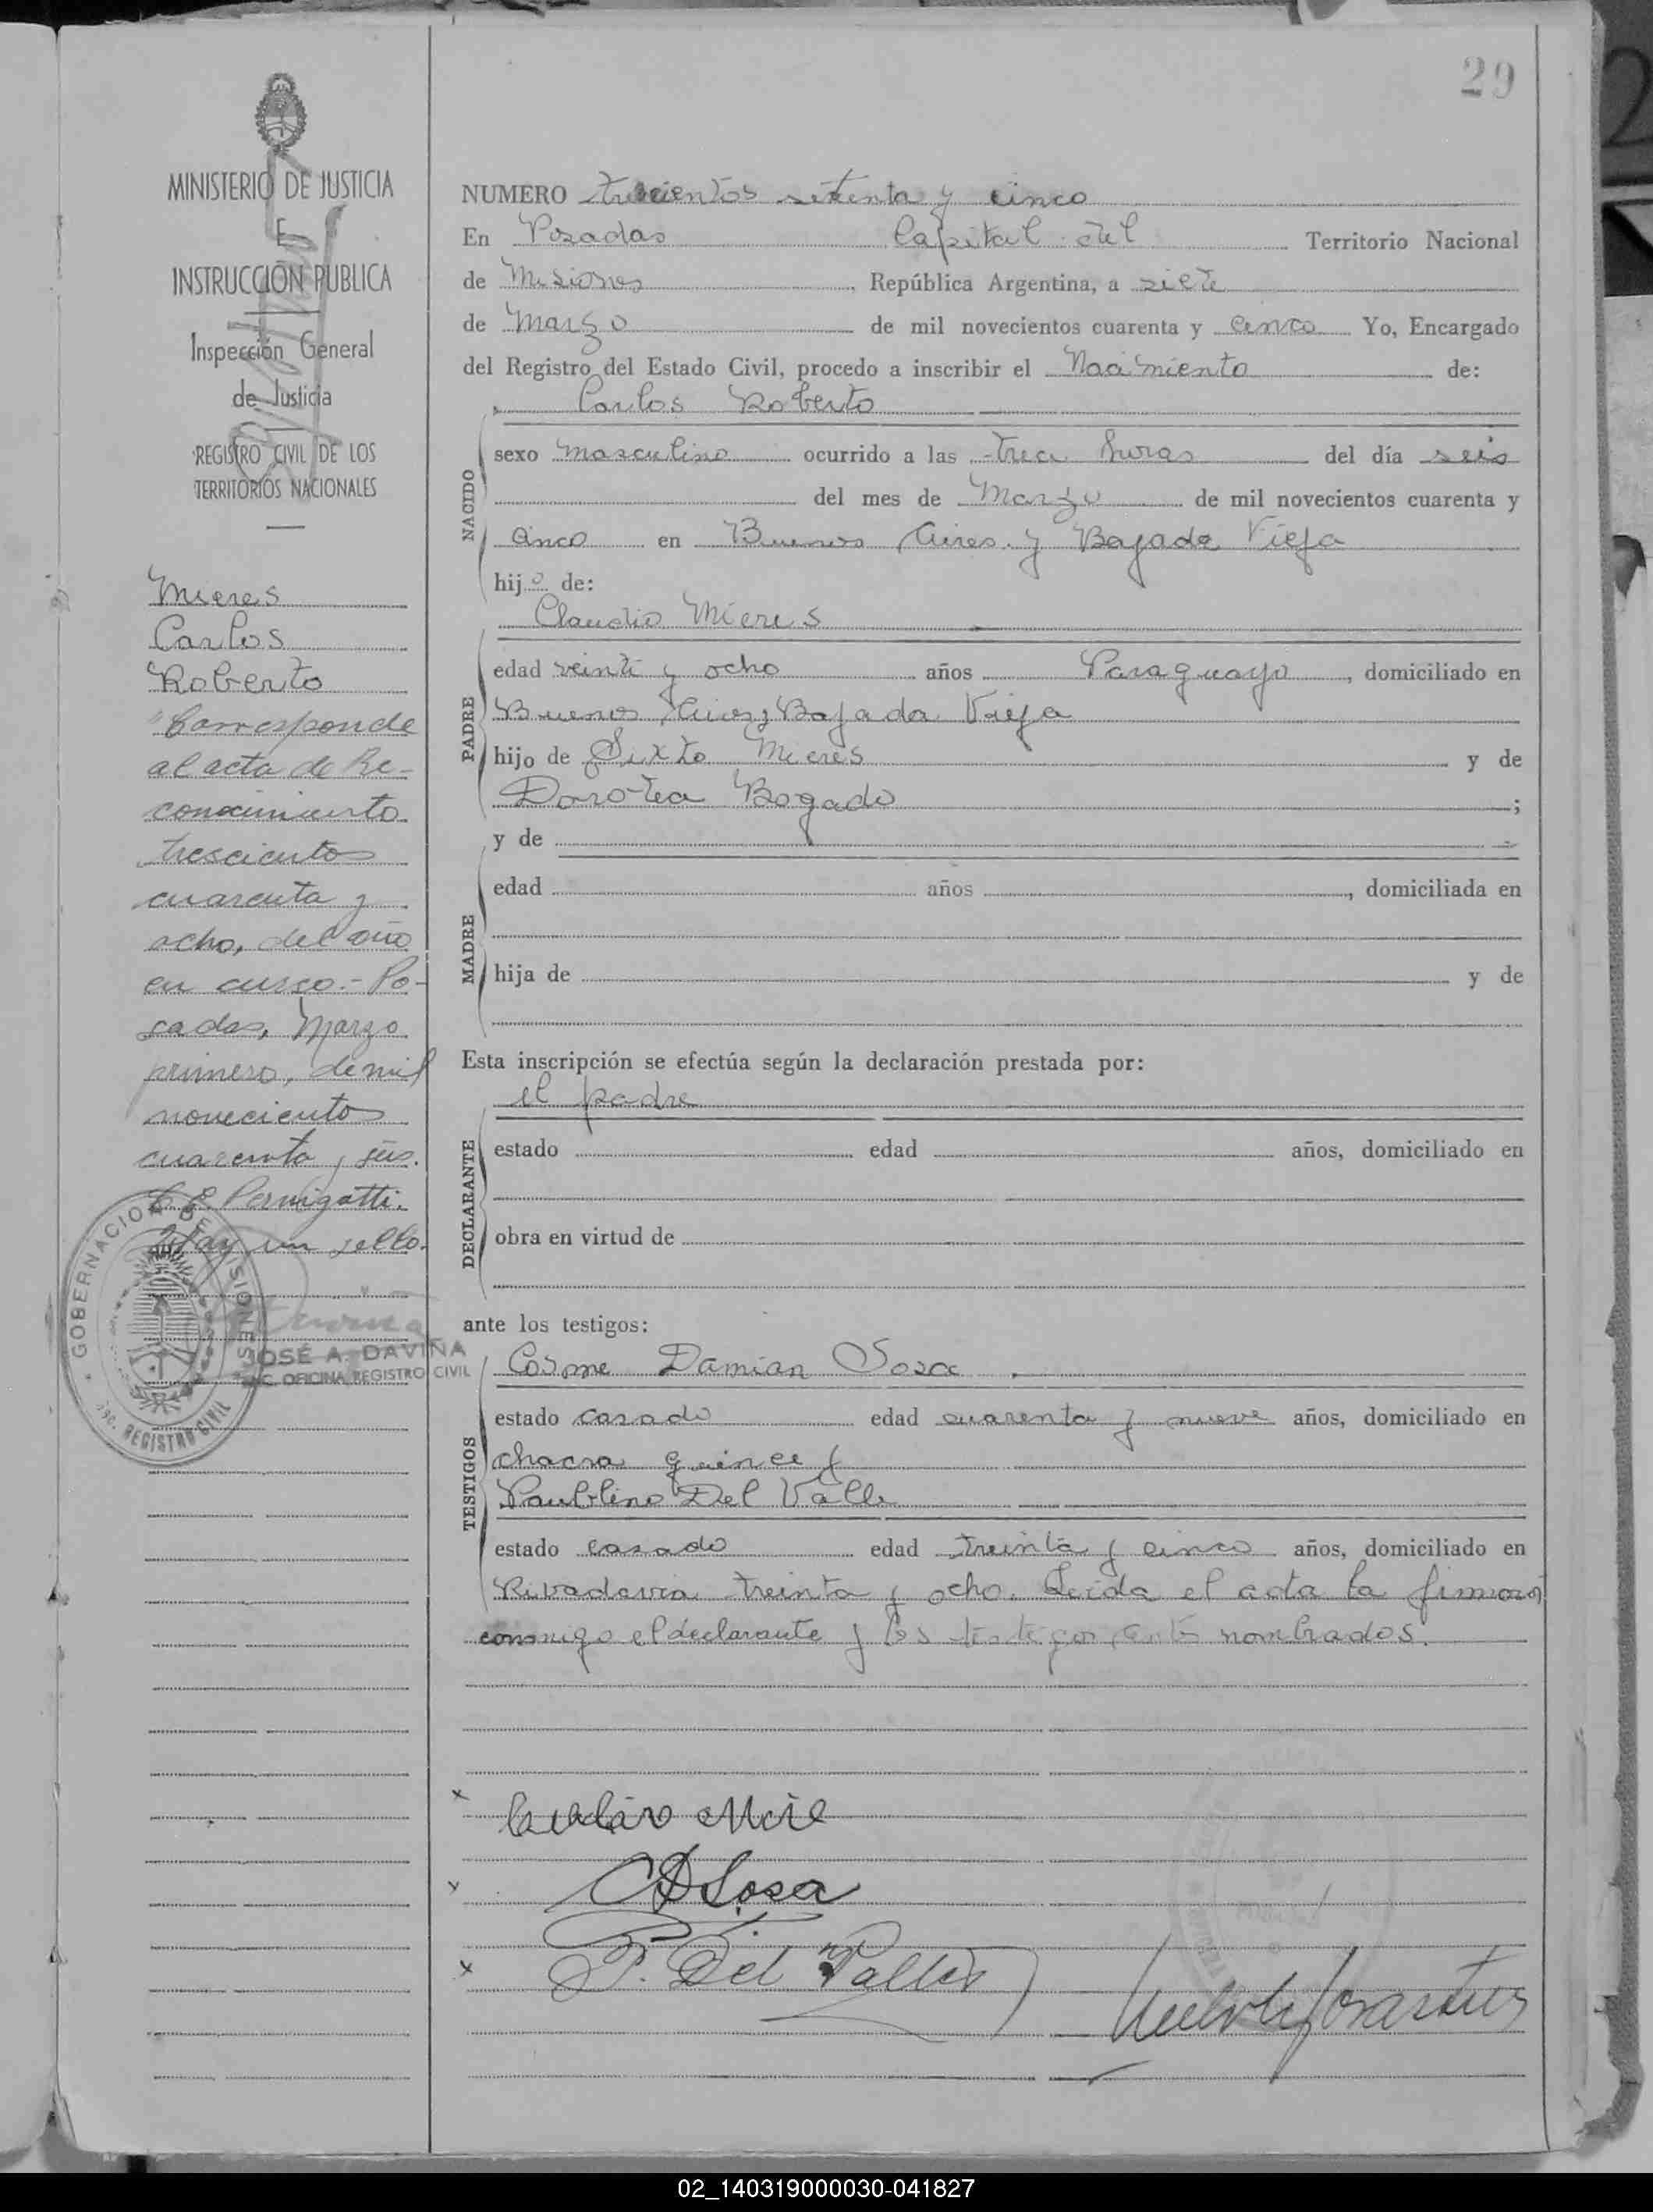 29
MINISTERIO DE JUSTICIA
E
INSTRUCCIÓN PUBLICA
Inspección General
de Justicia
REGISTRO CIVIL DE LOS
TERRITORIOS NACIONALES
Mieres
Carlos
Roberto
"Corresponde
al acta de Re-
conocimiento
trescientos
cuarenta y
ocho, del año
en curso.- Po-
sadas, Marzo
primero, de mil
novecientos
cuarenta y seis.
Pernigotti.
Hay un sello.
GOBERNACION DE MISIONES
REGISTRO CIVIL
JOSÉ A. DAVIÑA
OFICINA REGISTRO CIVIL
NUMERO trescientos setenta y cinco
En Posadas Capital del Territorio Nacional
de Misiones, República Argentina, a siete
de Marzo de mil novecientos cuarenta y cinco Yo, Encargado
del Registro del Estado Civil, procedo a inscribir el Nacimiento de:
Carlos Roberto
NACIDO
sexo masculino ocurrido a las trece horas del día seis
del mes de Marzo de mil novecientos cuarenta y
cinco en Buenos Aires y Bajada Vieja
hijo de:
Claudio Mieres
PADRE
edad veinti y ocho años Paraguayo, domiciliado en
Buenos Aires y Bajada Vieja
hijo de Sixto Mieres y de
Dorotea Bogado;
y de
MADRE
edad años, domiciliada en
hija de y de
Esta inscripción se efectúa según la declaración prestada por:
el padre
DECLARANTE
estado edad años, domiciliado en
obra en virtud de
ante los testigos:
Cosme Damian Sosa
TESTIGOS
estado casado edad cuarenta y nueve años, domiciliado en
chacra quince y
Paublino Del Valle
estado casado edad treinta y cinco años, domiciliado en
Rivadavia treinta y ocho. Leida el acta la firmaron
conmigo el declarante y los testigos antes nombrados.
C D Sosa
P. Del Valle
02_140319000030-041827